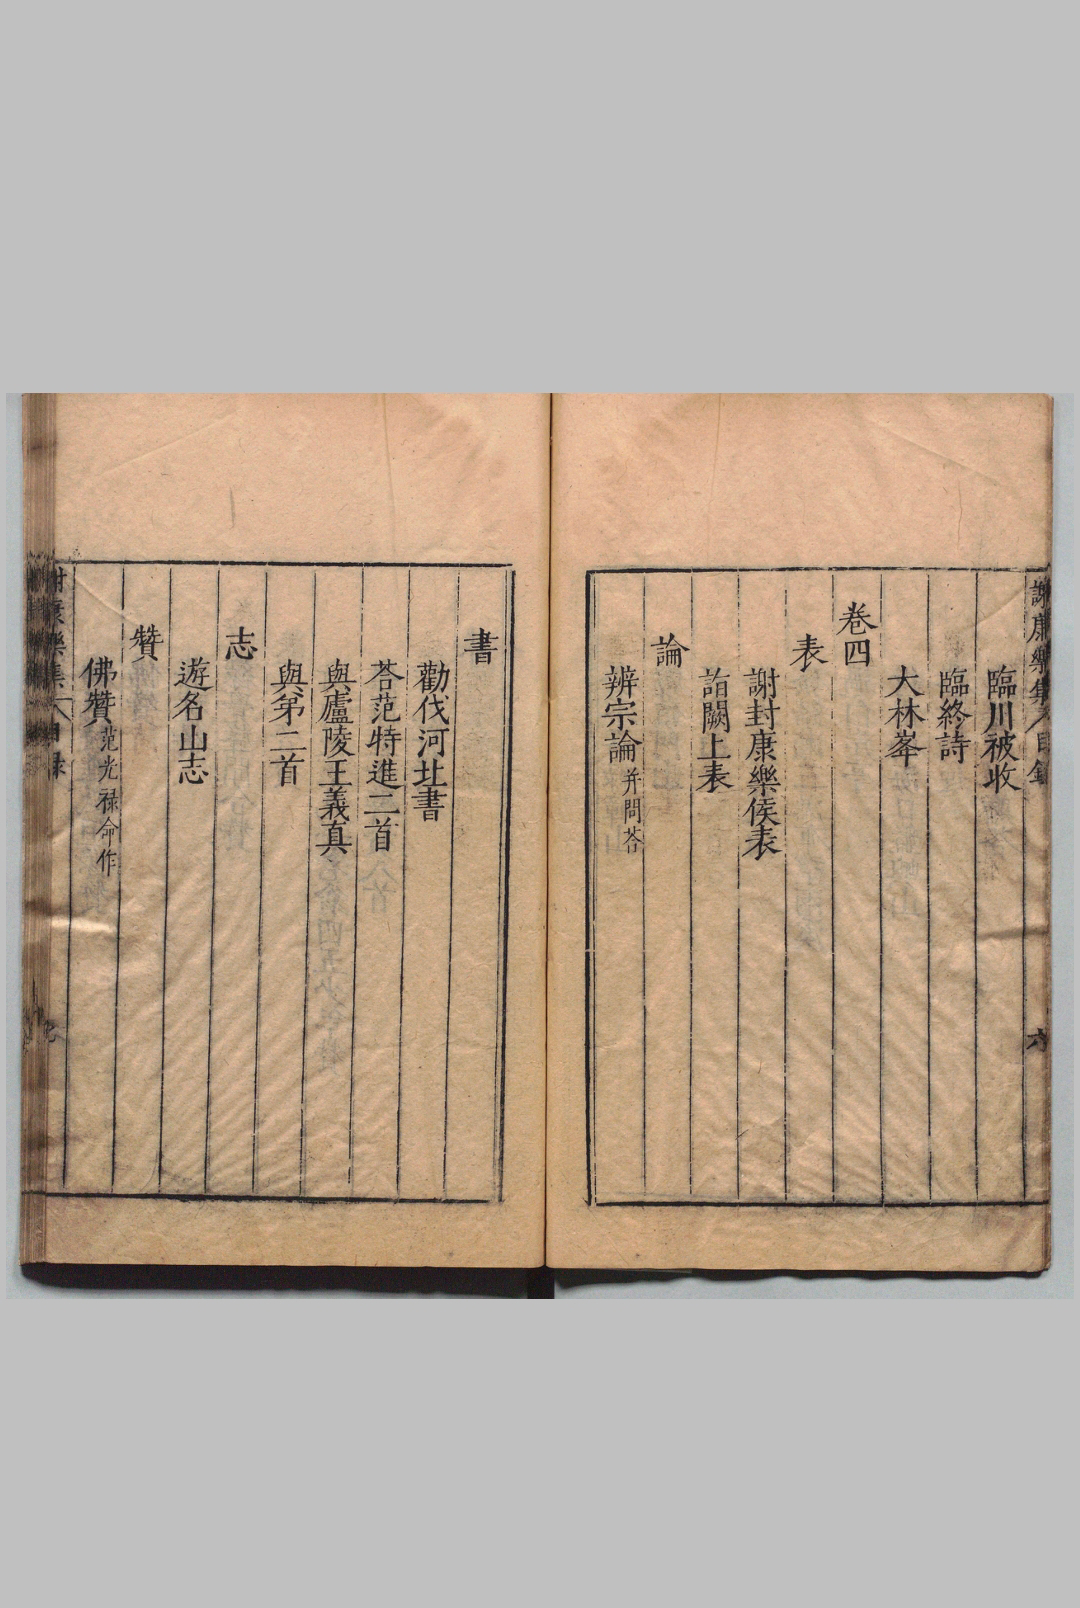 謝康樂集 目錄 六
臨川被收
臨終詩
大林峯
卷四
表
謝封康樂侯表
詣闕上表
論
辨宗論 并問荅
書
勸伐河北書
荅范特進二首
與廬陵王義真
與第二首
志
遊名山志
贊
佛贊 范光禄命作
謝康樂集 目録